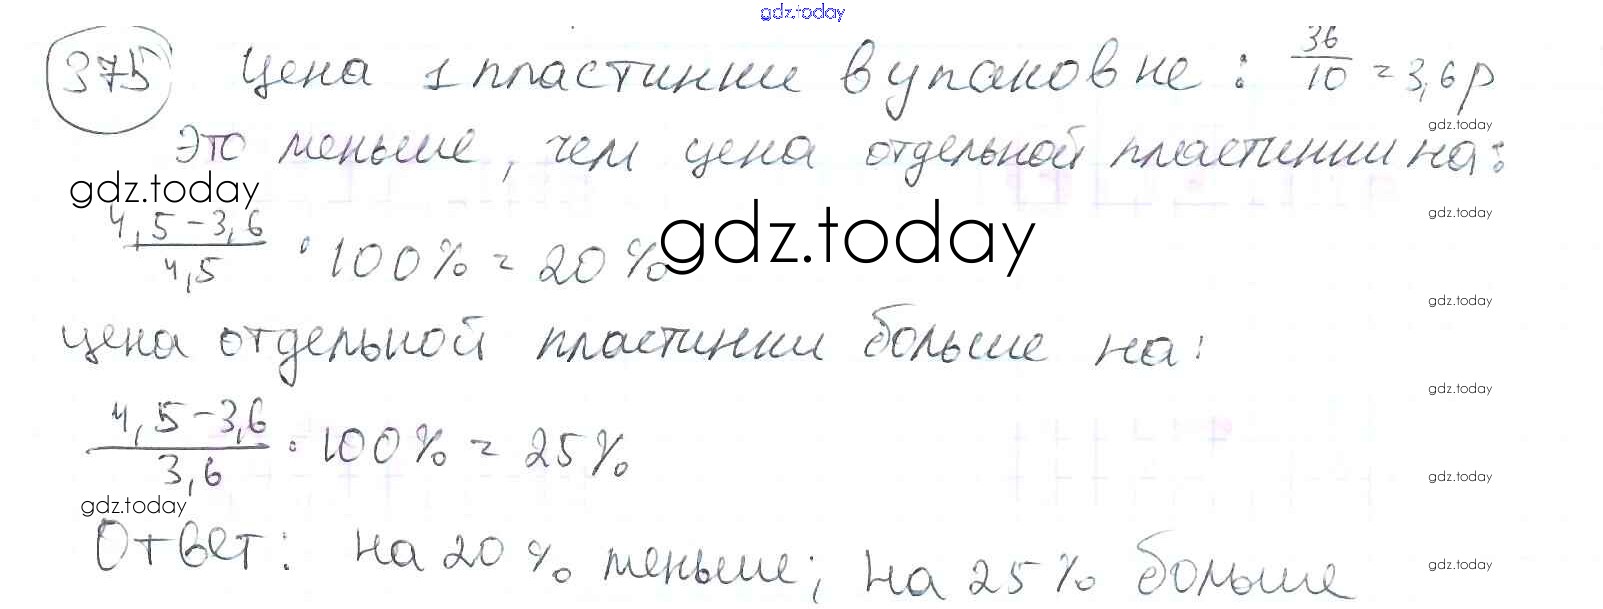 gdz.today
375 Цена 1 пластинки в упаковке: 36/10 = 3,6 р
gdz.today
Это меньше, чем цена отдельной пластинки на:
gdz.today
gdz.today
(4,5-3,6)/4,5 · 100% = 20%
gdz.today
gdz.today
цена отдельной пластинки больше на:
gdz.today
(4,5-3,6)/3,6 · 100% = 25%
gdz.today
gdz.today
Ответ: на 20% меньше; на 25% больше
gdz.today